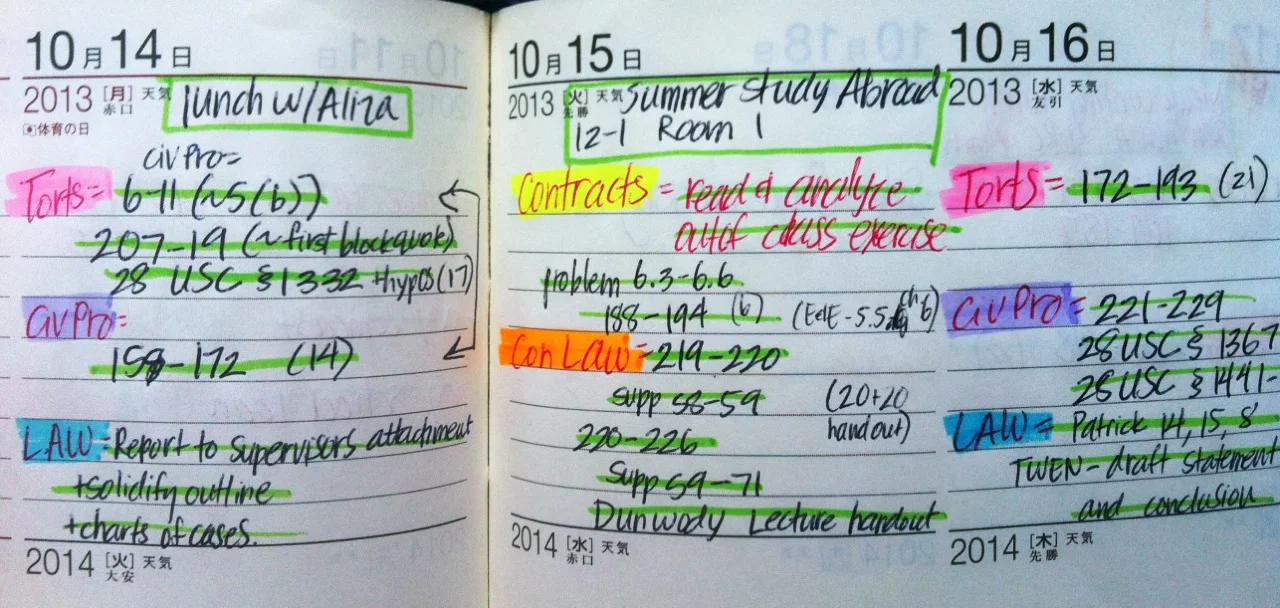 10月14日
2013 [月] 天気
赤口
lunch w/Aliza
[●]体育の日
CivPro=
Torts= 6-11 (~5(6))
207-19 (~first blockquote)
28 USC § 1332 +hypos (17)
CivPro=
158-172 (14)
LAW= Report to Supervisors attachment
+solidify outline
+charts of cases.
2014 [火] 天気
大安
10月15日
2013 [火] 天気
先勝
Summer Study Abroad
12-1 Room 1
Contracts = read & analyze
out of class exercise
problem 6.3-6.6
188-194 (6) (E&E - 5.5 ch 6)
Con LAW= 219-220
supp 58-59 (20+20
handout)
220-226
Supp 59-71
Dunwody Lecture handout
2014 [水] 天気
赤口
10月16日
2013 [水] 天気
友引
Torts= 172-193 (21)
CivPro= 221-229
28 USC § 1367
28 USC § 1441-
LAW= Patrick 14, 15, 8
TWEN- draft statement
and conclusion
2014 [木] 天気
先勝